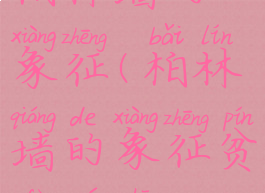 xiàng zhēng bǎi lín
象征(柏林
qiáng de xiàng zhēng pín
墙的象征贫